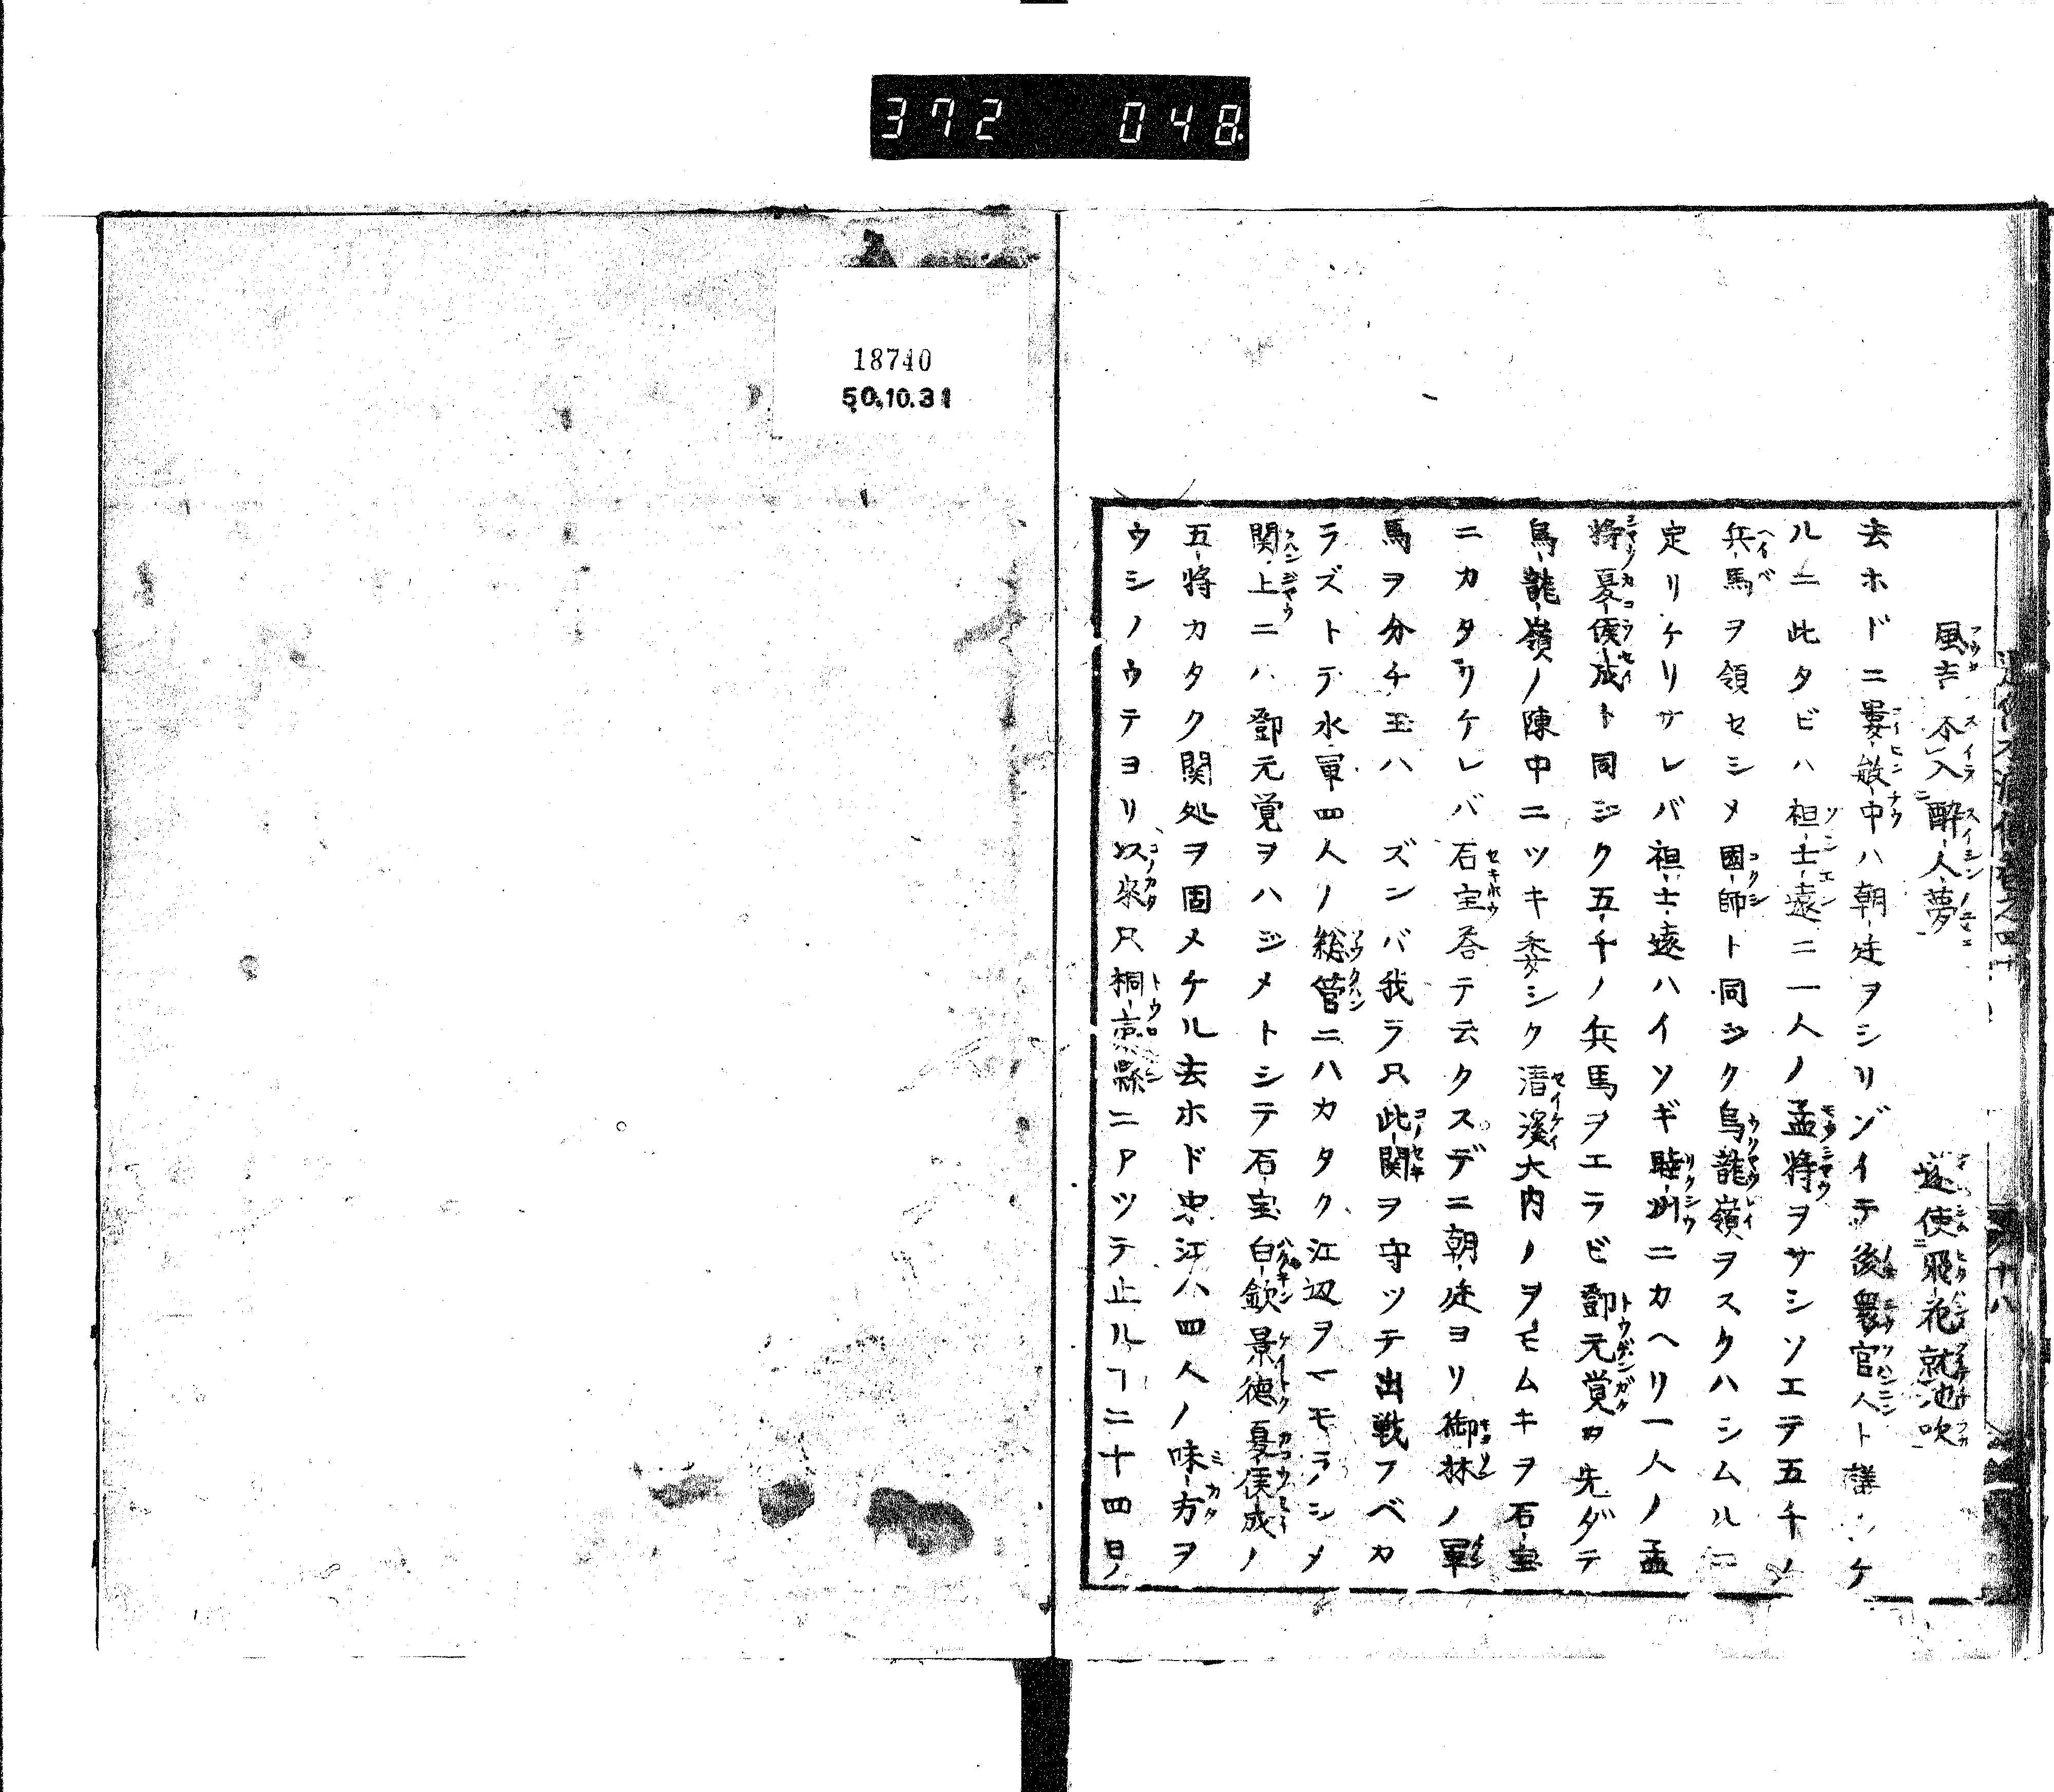 372 048
風吉不入酔人夢 逐使飛花就池吹
去ホドニ婁敏中ハ朝廷ヲシリゾイテ後衆官人ト議シケ
ルニ此タビハ祖士遠ニ一人ノ孟将ヲサシソエテ五千ノ
兵馬ヲ領セシメ國師ト同シク烏龍嶺ヲスクハシムルニ
定リケリサレバ祖士遠ハイソギ睦州ニカヘリ一人ノ孟
将夏侯成ト同ジク五千ノ兵馬ヲエラビ鄧元覚カ先ダテ
烏龍嶺ノ陳中ニツキ委シク清溪大内ノヲモムキヲ石宝
ニカタリケレバ石宝答テ云クスデニ朝廷ヨリ御林ノ軍
馬ヲ分チ玉ハズンバ我ラ只此関ヲ守ツテ出戦フベカ
ラズトテ水軍四人ノ総管ニハカタク江辺ヲマモラシメ
関上ニハ鄧元覚ヲハジメトシテ石宝白欽景徳夏侯成ノ
五将カタク関処ヲ固メケル去ホド宋江ハ四人ノ味方ヲ
ウシノウテヨリ以來只桐盧縣ニアツテ止ルヿ二十四日ノ
18740
50.10.31